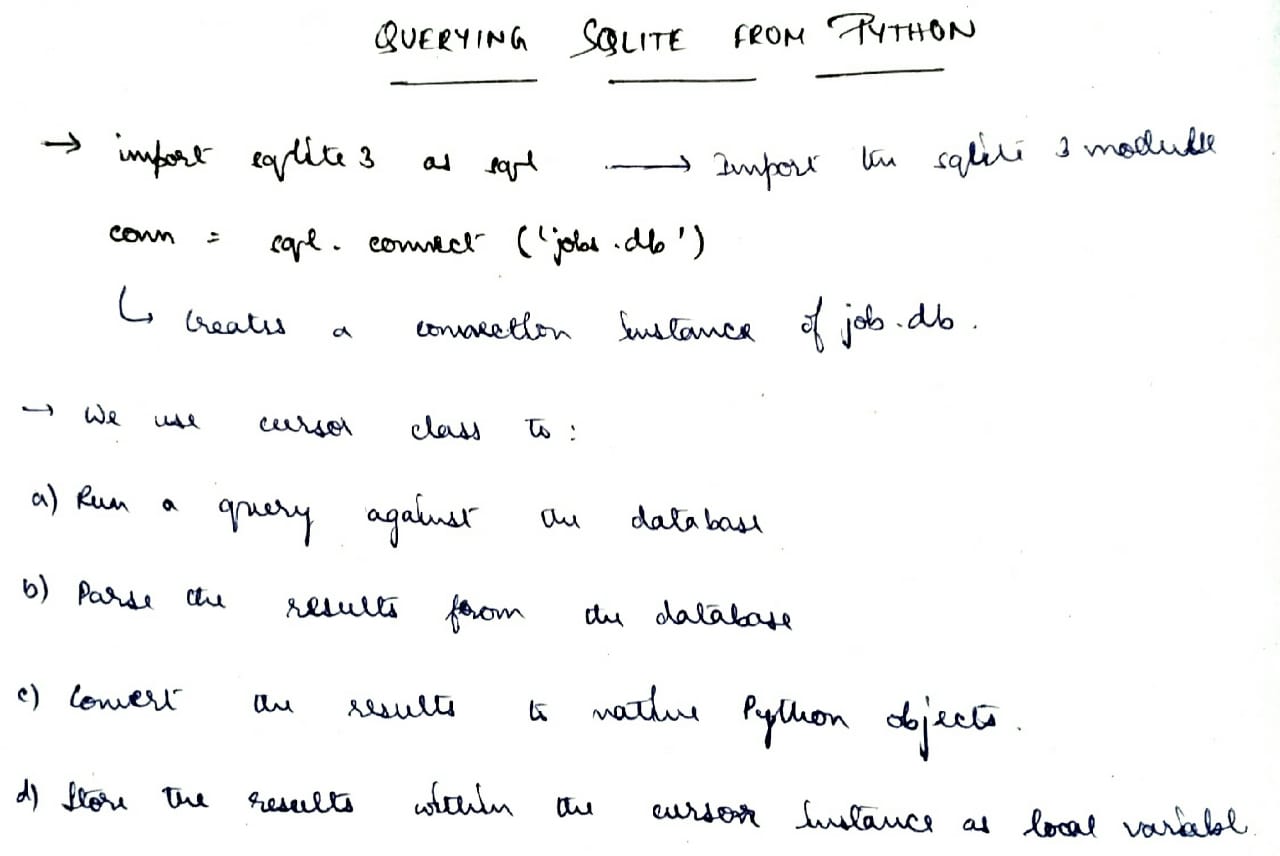 QUERYING SQLITE FROM PYTHON
→ import sqlite3 as sql → Import the sqlite 3 module
conn = sql. connect ('jobs.db')
↳ Creates a connection instance of job.db.
→ We use cursor class to:
a) Run a query against the database
b) Parse the results from the database
c) Convert the results to native Python objects.
d) Store the results within the cursor instance as local variable.